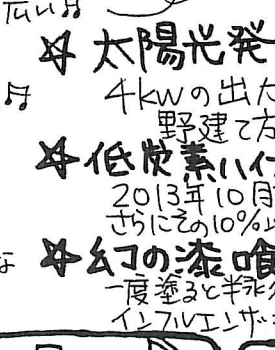 広い♫
☆太陽光発
♫
4kwの出力
野建て方
☆低炭素ハイ
2013年10月
さらにその10%以
な
☆幻の漆喰
一度塗ると半永久
インフルエンザ